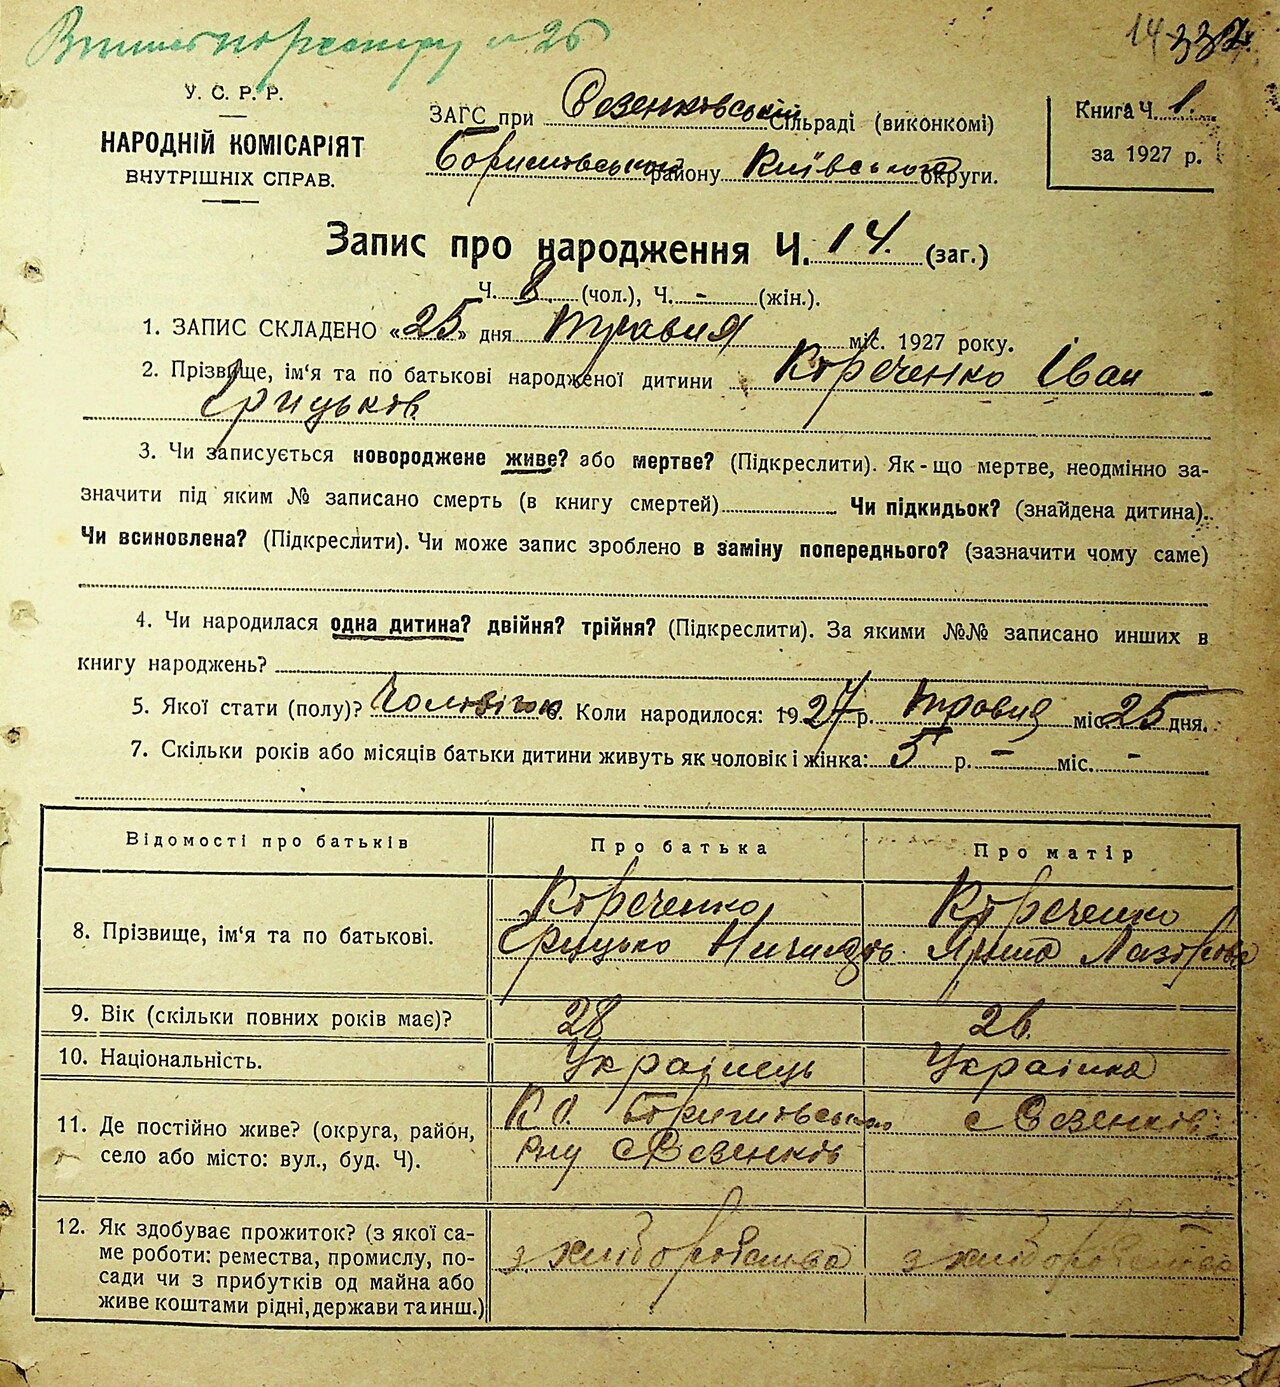 14 332.
У. С. Р. Р.
НАРОДНІЙ КОМІСАРІЯТ
ВНУТРІШНІХ СПРАВ.
ЗАГС при Везенковській Сільраді (виконкомі)
району Київської округи.
Книга Ч. 1.
за 1927 р.
Запис про народження Ч. 14. (заг.)
Ч. 8 (чол.), Ч. - (жін.).
1. ЗАПИС СКЛАДЕНО «25» дня травня міс. 1927 року.
2. Прізвище, ім'я та по батькові народженої дитини Кореченко Іван
Грицьков
3. Чи записується новороджене живе? або мертве? (Підкреслити). Як-що мертве, неодмінно за-
значити під яким № записано смерть (в книгу смертей) Чи підкидьок? (знайдена дитина).
Чи всиновлена? (Підкреслити). Чи може запис зроблено в заміну попереднього? (зазначити чому саме)
4. Чи народилася одна дитина? двійня? трійня? (Підкреслити). За якими №№ записано инших в
книгу народжень?
5. Якої стати (полу)? 6. Коли народилося: 1927 р. травня міс. 25 дня.
7. Скільки років або місяців батьки дитини живуть як чоловік і жінка: 5 р. - міс. -
Відомості про батьків Про батька Про матір
8. Прізвище, ім'я та по батькові.
Кореченко Кореченко
Грицько Ярина
9. Вік (скільки повних років має)? 28 26.
10. Національність. Українець Українка
11. Де постійно живе? (округа, район,
село або місто: вул., буд. Ч).
К.О. с Везенків
р-ну с Везенків
12. Як здобуває прожиток? (з якої са-
ме роботи: ремества, промислу, по-
сади чи з прибутків од майна або
живе коштами рідні, держави та инш.)
з хліборобства з хліборобства